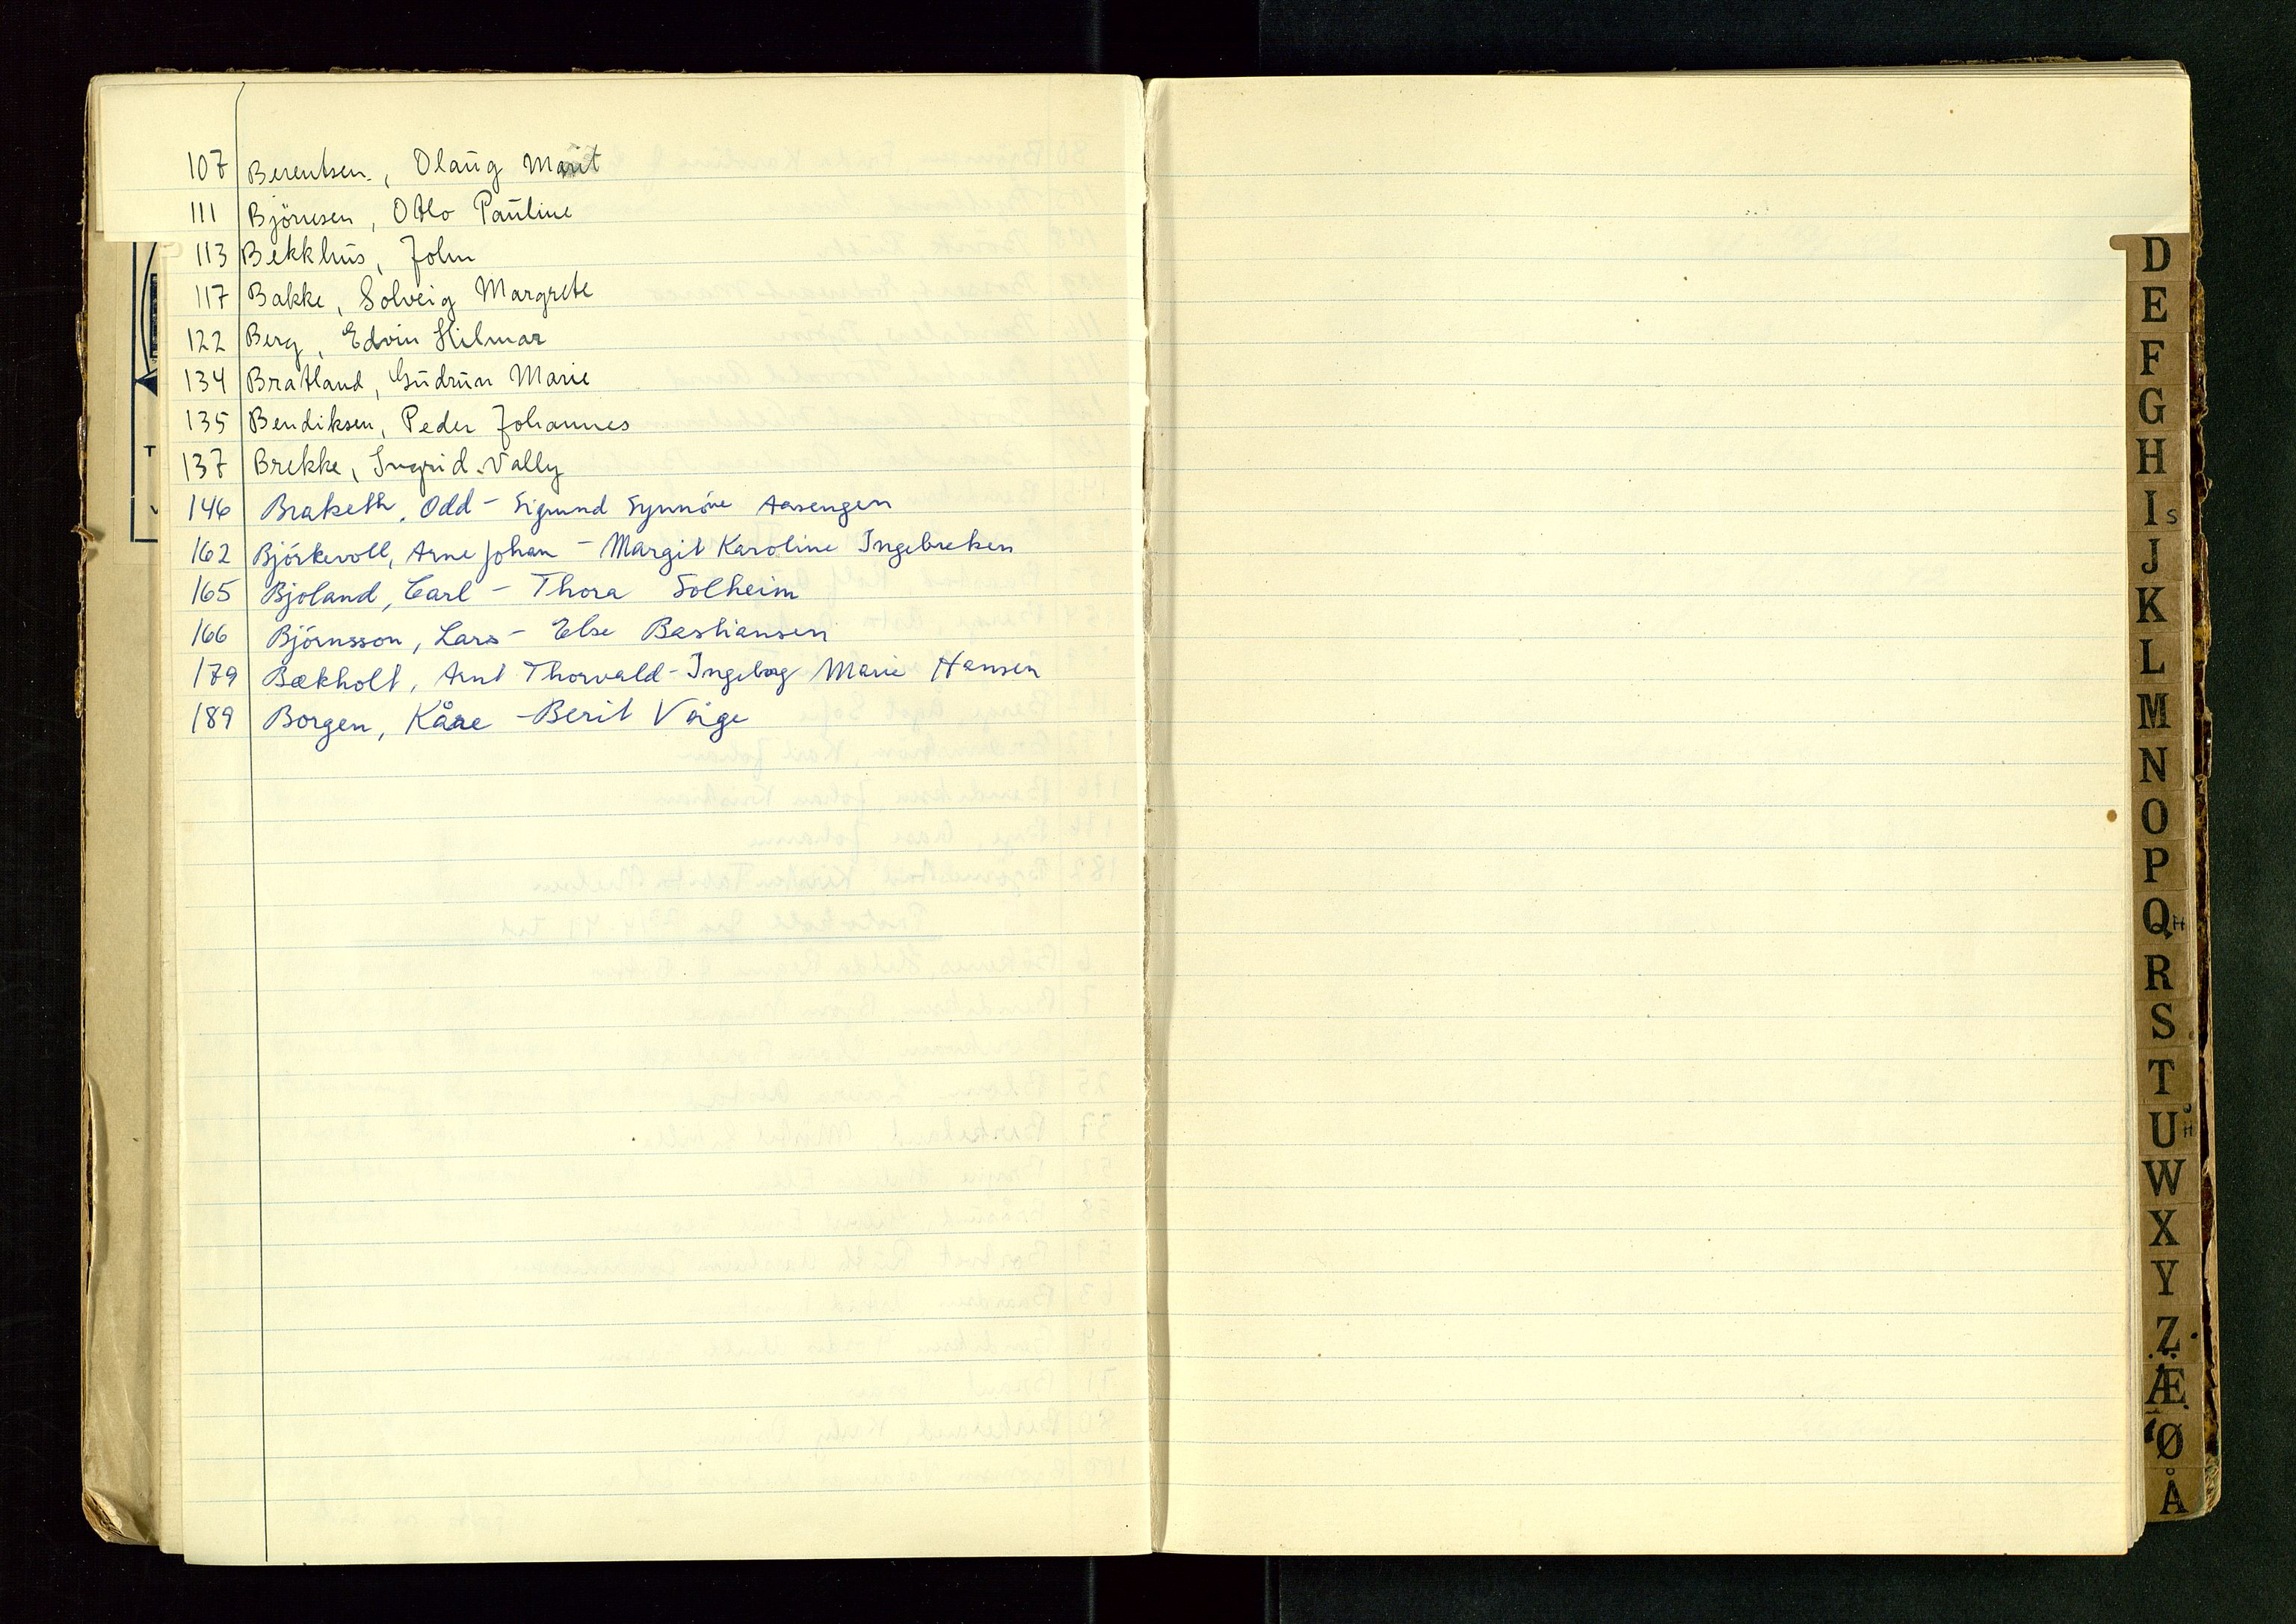 107 Berentsen, Olaug Marit
111 Björnsen, Otto Pauline
113 Bekkhus, John
117 Bakke, Solveig Margrete
122 Berg, Edvin Hilmar
134 Bratland, Gudrun Marie
135 Bendiksen, Peder Johannes
137 Brekke, Ingrid Vally
146 Braketh, Odd - Sigmund Synnöve Aasengen
162 Björkevoll, Arne Johan - Margit Karoline Ingebreksen
165 Bjoland, Carl - Thora Solheim
166 Björnsson, Lars - Else Bastiansen
179 Bækholt, Arnt Thorvald - Ingeborg Marie Hansen
189 Borgen, Kåre - Berit Vaige
D
E
F
G
H
I s
J
K
L
M
N
O
P
Q H
R
S
T
U H
W
X
Y
Z
Æ
Ø
Å